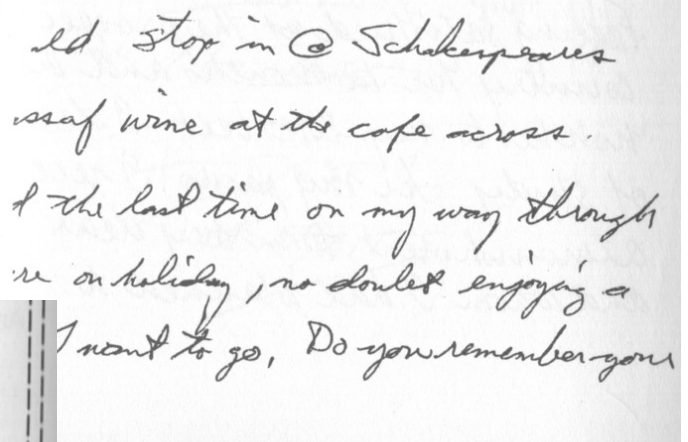 eld stop in @ Schakespeares
ssaf wine at the cafe across.
the last time on my way through
re on holiday, no doubt enjoying a
I want to go. Do you remember your